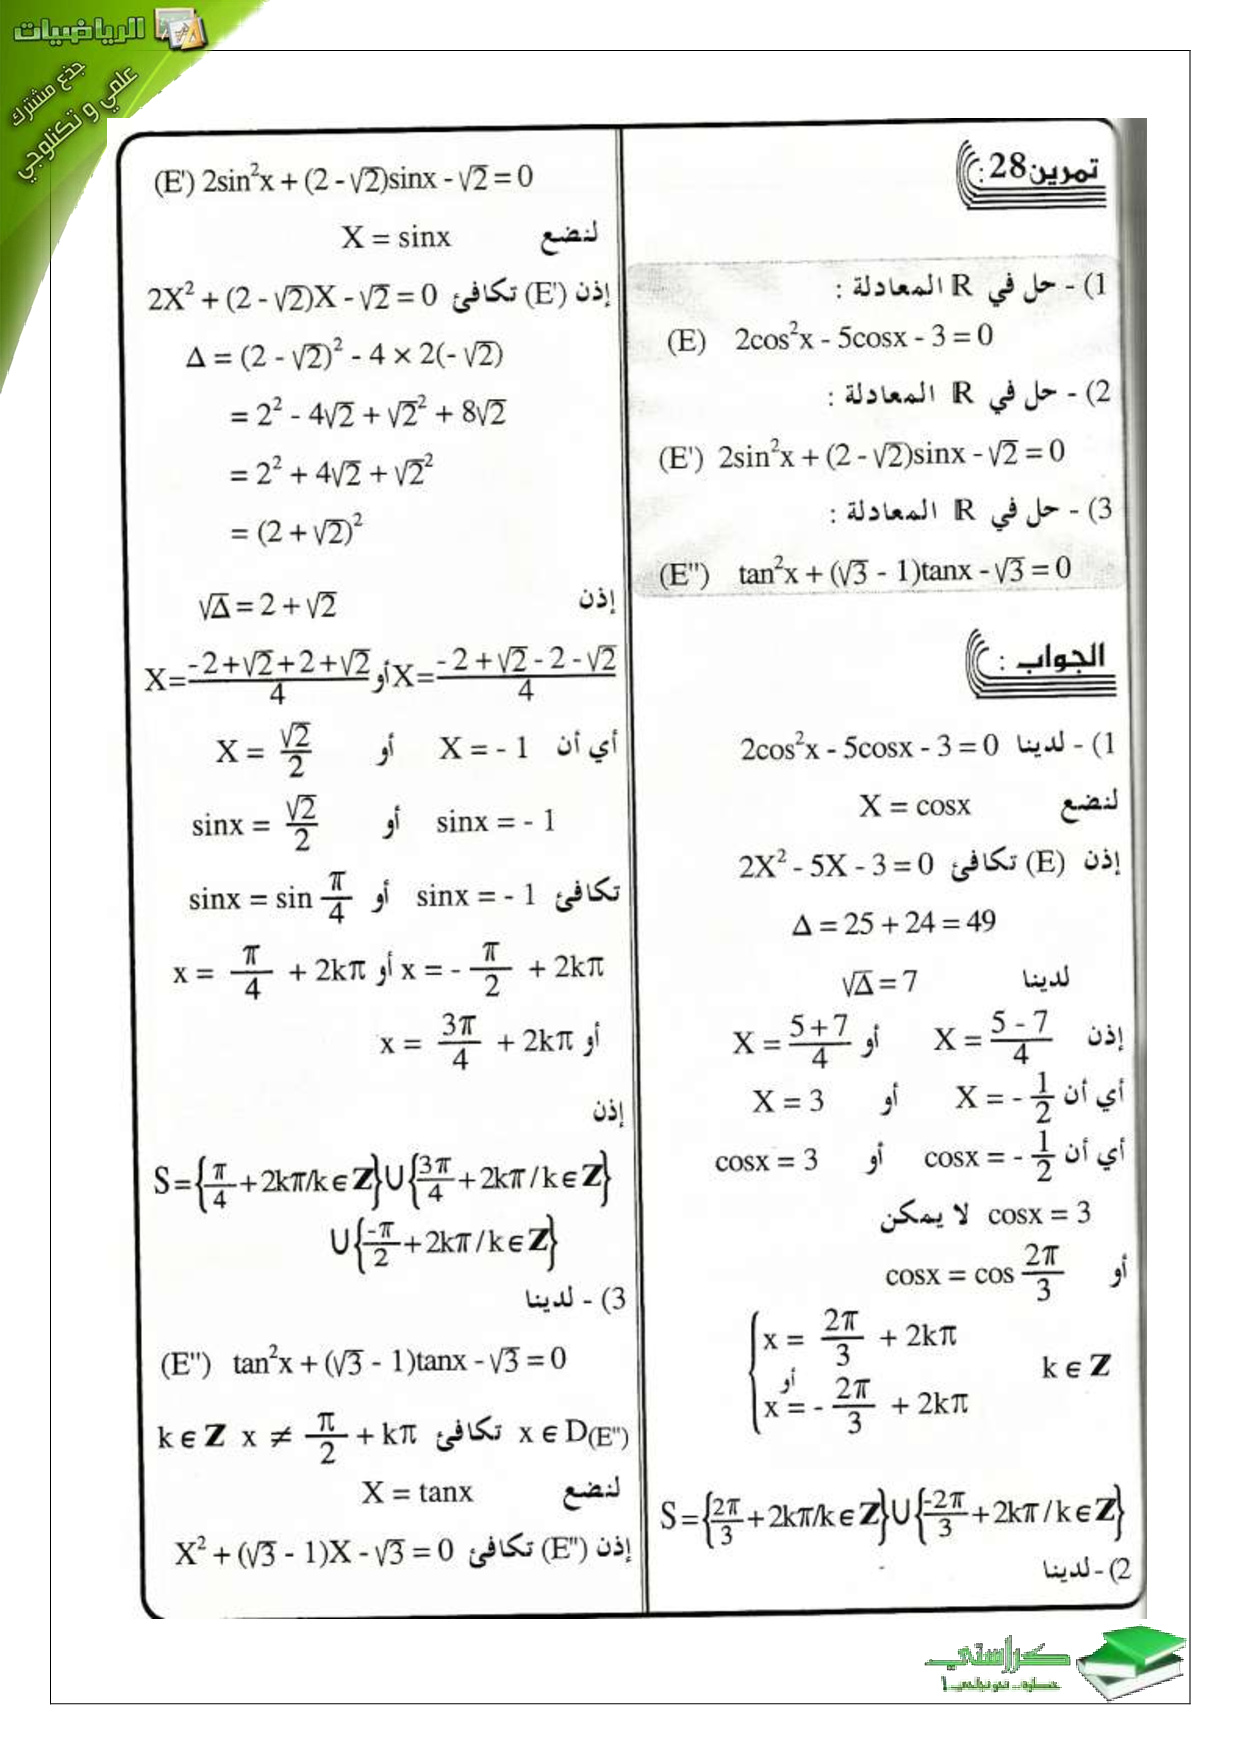 الرياضيات
جذع مشترك
علمي و تكنلوجي
تمرين28:
1) - حل في ℝ المعادلة :
(E) 2cos²x - 5cosx - 3 = 0
2) - حل في ℝ المعادلة :
(E') 2sin²x + (2 - √2)sinx - √2 = 0
3) - حل في ℝ المعادلة :
(E'') tan²x + (√3 - 1)tanx - √3 = 0
الجواب :
1) - لدينا 2cos²x - 5cosx - 3 = 0
لنضع X = cosx
إذن (E) تكافئ 2X² - 5X - 3 = 0
Δ = 25 + 24 = 49
لدينا √Δ = 7
إذن X = (5 - 7)/4 أو X = (5 + 7)/4
أي أن X = - 1/2 أو X = 3
أي أن cosx = - 1/2 أو cosx = 3
cosx = 3 لا يمكن
أو cosx = cos 2π/3
x = 2π/3 + 2kπ
أو k ∈ Z
x = - 2π/3 + 2kπ
S = {2π/3 + 2kπ/k ∈ Z} ∪ {-2π/3 + 2kπ / k ∈ Z}
2) - لدينا
(E') 2sin²x + (2 - √2)sinx - √2 = 0
لنضع X = sinx
إذن (E') تكافئ 2X² + (2 - √2)X - √2 = 0
Δ = (2 - √2)² - 4 × 2(- √2)
= 2² - 4√2 + √2² + 8√2
= 2² + 4√2 + √2²
= (2 + √2)²
إذن √Δ = 2 + √2
X = (- 2 + √2 - 2 - √2)/4 أو X = (-2 + √2 + 2 + √2)/4
أي أن X = - 1 أو X = √2/2
sinx = - 1 أو sinx = √2/2
تكافئ sinx = - 1 أو sinx = sin π/4
x = - π/2 + 2kπ أو x = π/4 + 2kπ
أو x = 3π/4 + 2kπ
إذن
S = {π/4 + 2kπ/k ∈ Z} ∪ {3π/4 + 2kπ / k ∈ Z}
∪ {-π/2 + 2kπ / k ∈ Z}
3) - لدينا
(E'') tan²x + (√3 - 1)tanx - √3 = 0
x ∈ D(E'') تكافئ x ≠ π/2 + kπ k ∈ Z
لنضع X = tanx
إذن (E'') تكافئ X² + (√3 - 1)X - √3 = 0
كراستي